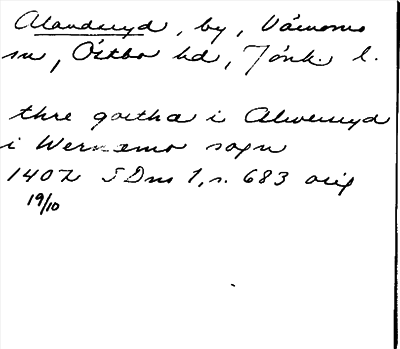 Alandsryd, by, Värnamo
sn, Östbo hd, Jönk. l.
thre gærtha i Alwensryd
i Wernæmo sogn
1402 SDns 1, s. 683 orig
19/10